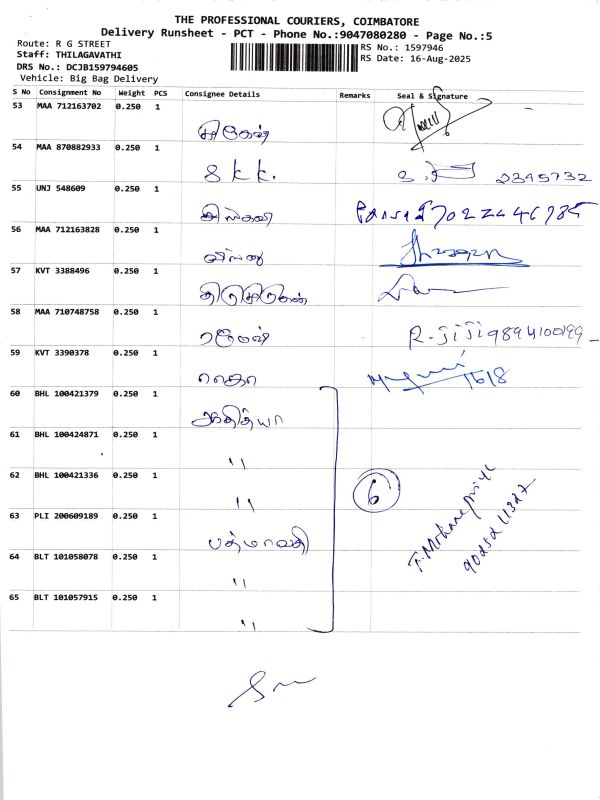 THE PROFESSIONAL COURIERS, COIMBATORE
Delivery Runsheet - PCT - Phone No.:9047080280 - Page No.:5
Route: R G STREET
Staff: THILAGAVATHI
DRS No.: DCJB159794605
Vehicle: Big Bag Delivery
RS No.: 1597946
RS Date: 16-Aug-2025
S No Consignment No Weight PCS Consignee Details Remarks Seal & Signature
53 MAA 712163702 0.250 1
54 MAA 870882933 0.250 1
S K K. 2395732
55 UNJ 548609 0.250 1
56 MAA 712163828 0.250 1
57 KVT 3388496 0.250 1
58 MAA 710748758 0.250 1
ரமேஷ் R. Jiji 9894100199
59 KVT 3390378 0.250 1
1618
60 BHL 100421379 0.250 1
ஆதித்யா
61 BHL 100424871 0.250 1
"
62 BHL 100421336 0.250 1
"
6
63 PLI 200609189 0.250 1
பத்மாவதி
64 BLT 101058078 0.250 1
"
65 BLT 101057915 0.250 1
"